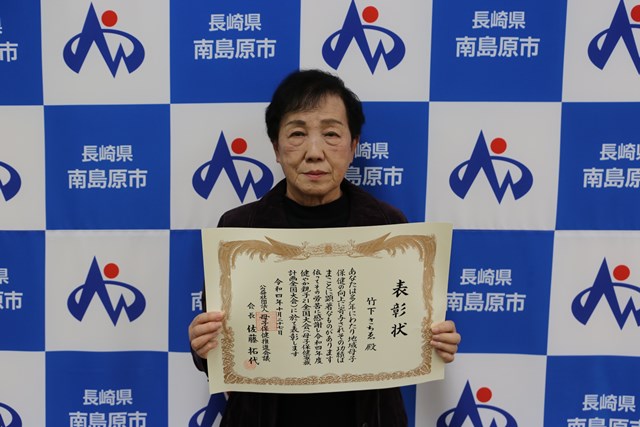 長崎県
南島原市
長崎県
南島原市
長崎県
南島原市
長崎県
南島原市
長崎県
南島原市
長崎県
南島原市
長崎県
南島原市
長崎県
南島原市
表彰状
竹下さちゑ 殿
あなたは多年にわたり地域母子
保健の向上に寄与されその功績は
まことに顕著なものがあります
依ってその労苦に感謝し令和四年度
健やか親子21全国大会(母子保健家族
計画全国大会)に於て表彰します
令和四年十月二十七日
公益社団法人母子保健推進会議
会長 佐藤拓代